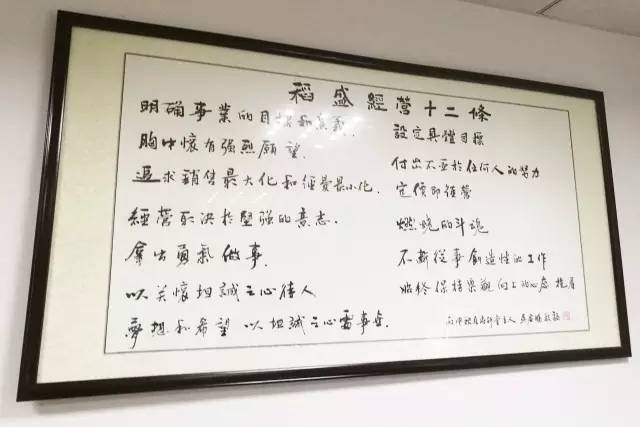 稻盛經營十二條
明确事業的目的和意義
設定具體目標
胸中懷有强烈願望.
付出不亞於任何人的努力
追求銷售最大化和經費最小化.
定價即經營
經營取決於堅强的意志.
燃燒的斗魂
拿出勇氣做事.
不断從事創造性的工作
以关懷坦誠之心待人
始终保持樂觀向上的心态 抱着
夢想和希望 以坦誠之心